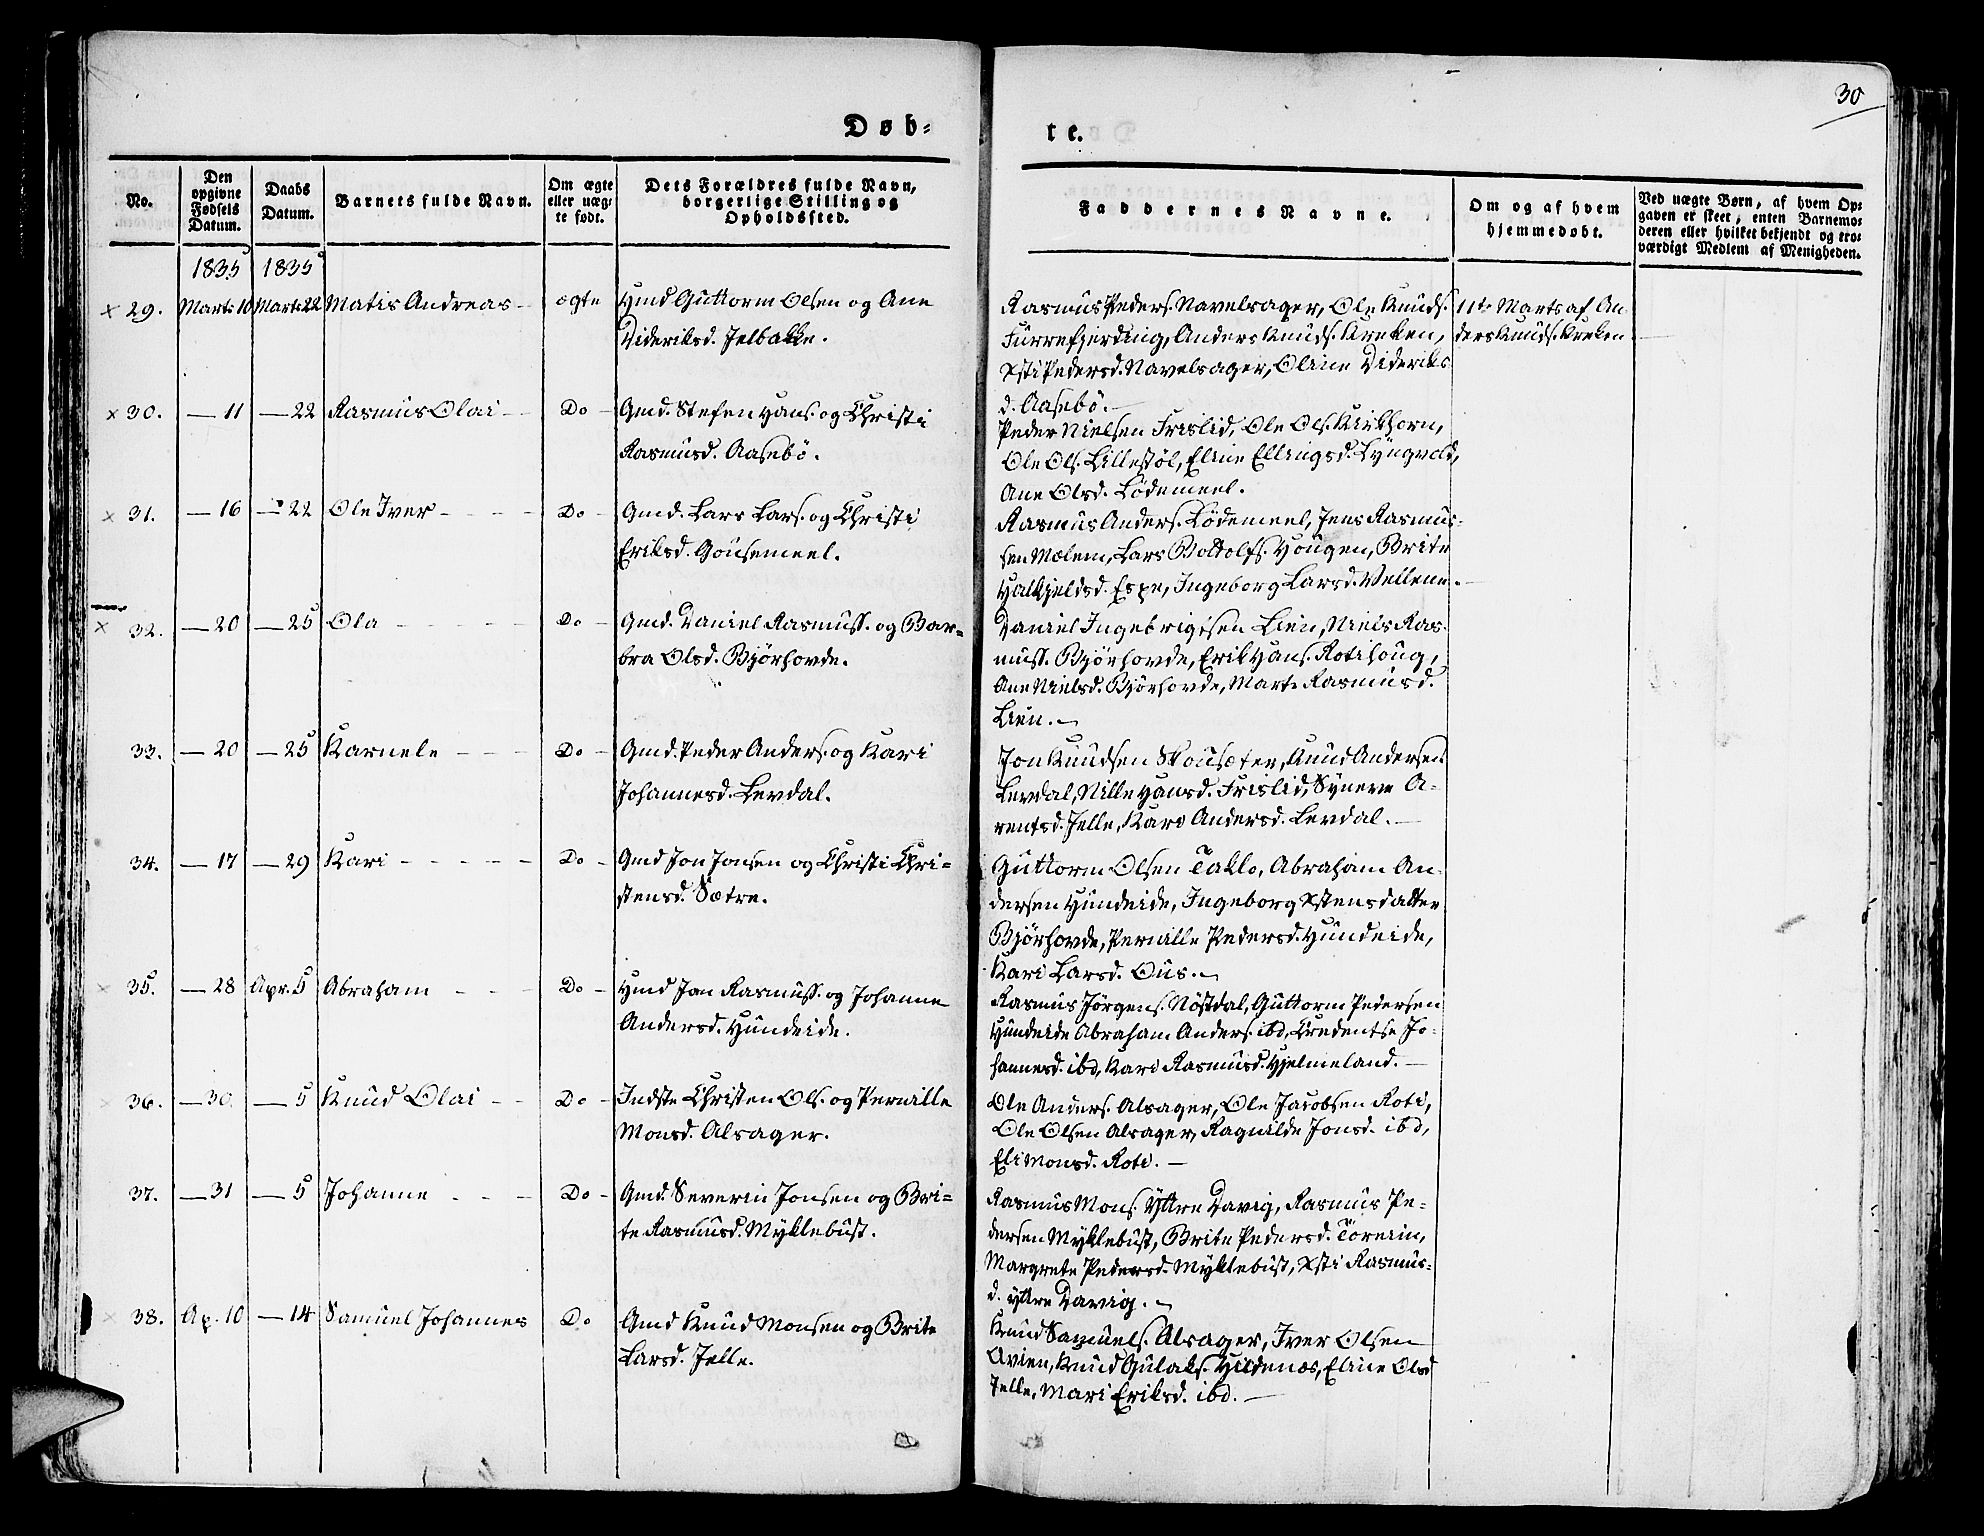 30
Døb-
te.
No.
Den opgivne Fødsels Datum.
Daabs Datum.
Barnets fulde Navn.
Om ægte eller uæg-te født.
Dets Forældres fulde Navn, borgerlige Stilling og Opholdssted.
Faddernes Navne.
Om og af hvem hjemmedøbt.
Ved uægte Børn, af hvem Op-
gaven er skeet, enten Barnemo-
deren eller hvilket bekjendt og tro-
værdigt Medlem af Menigheden.
1835 1835
× 29. Marts 10 Marts 22 Matis Andreas - ægte Hmd Guttorm Olsen og Ane
Dideriksd. Jelbakke.
Rasmus Peders. Navelsager, Ole Knuds.
Furrefjerding, Anders Knuds. Kreken,
Xsti Pedersd. Navelsager, Oline Dideriks
d. Aasebö. —
11te Marts af An
ders Knuds. Kreken
× 30. — 11 — 22 Rasmus Olai - - Do - Gmd. Stefen Hans. og Christi
Rasmusd. Aasebö.
Peder Nielsen Frislid, Ole Ols. Kirkhorn,
Ole Ols. Lillestöl, Eline Ellingsd. Lyngvold,
Ane Olsd. Lödemeel.
× 31. — 16 — 22 Ole Iver - - - - Do - Gmd. Lars Lars. og Christi
Eriksd. Gousemeel.
Rasmus Anders. Lödemeel, Jens Rasmus-
sen Mælem, Lars Bottolfs. Hougen, Brite
Halkjeldsd. Espe, Ingeborg Larsd. Vellene. —
× 32. — 20 — 25 Ola - - - - - Do - Gmd. Daniel Rasmuss. og Bar-
bra Olsd. Björhovde.
Daniel Ingebrigtsen Lien, Niels Ras-
muss. Björhovde, Erik Hans. Rotihoug,
Ane Nielsd. Björhovde, Marte Rasmusd.
Lien. —
33. — 20 — 25 Karnele - - - Do - Gmd. Peder Anders. og Kari
Johannesd. Levdal.
Jon Knudsen Skousæter, Knud Andersen
Levdal, Nille Hansd. Frislid, Syneve A-
rentsd. Jelle, Kari Andersd. Levdal. —
34. — 17 — 29 Kari - - - - - Do - Gmd Jon Jonsen og Christi Chri-
stensd. Sætre.
Guttorm Olsen Taklo, Abraham An-
dersen Hundeide, Ingeborg Xstensdatter
Björhovde, Pernille Pedersd. Hundeide,
Kari Larsd. Ous. —
× 35. — 28 Apr. 5 Abraham - - - Do - Hmd Jon Rasmuss. og Johanne
Andersd. Hundeide.
Rasmus Jörgens. Nöstdal, Guttorm Pedersen
Hundeide Abraham Anders. ibd, Credentse Jo-
hannesd. ibd, Kari Rasmusd. Hjelmeland. —
36. — 30 — 5 Knud Olai - - Do - Indste Christen Ols. og Pernille
Monsd. Alsager.
Ole Anders. Alsager, Ole Jacobsen Roti,
Ole Olsen Alsager, Ragnilde Jonsd. ibd,
Eli Monsd. Roti. —
37. — 31 — 5 Johanne - - - Do - Gmd. Severin Jonsen og Bri-
te Rasmusd. Myklebust.
Rasmus Mons. Yttre Davig, Rasmus Pe-
dersen Myklebust, Brite Pedersd. Törein,
Margrete Pedersd. Myklebust, Xsti Rasmus-
d. yttre Davig. —
× 38. Ap. 10 — 14 Samuel Johannes Do Gmd Knud Monsen og Brite
Larsd. Jelle.
Knud Samuels. Alsager, Iver Olsen
Avien, Knud Gulaks. Hildenæs, Eline Olsd
Jelle, Mari Eriksd. ibd. —